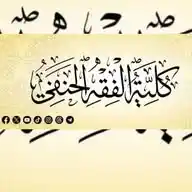 كلية الفقه الحنفي